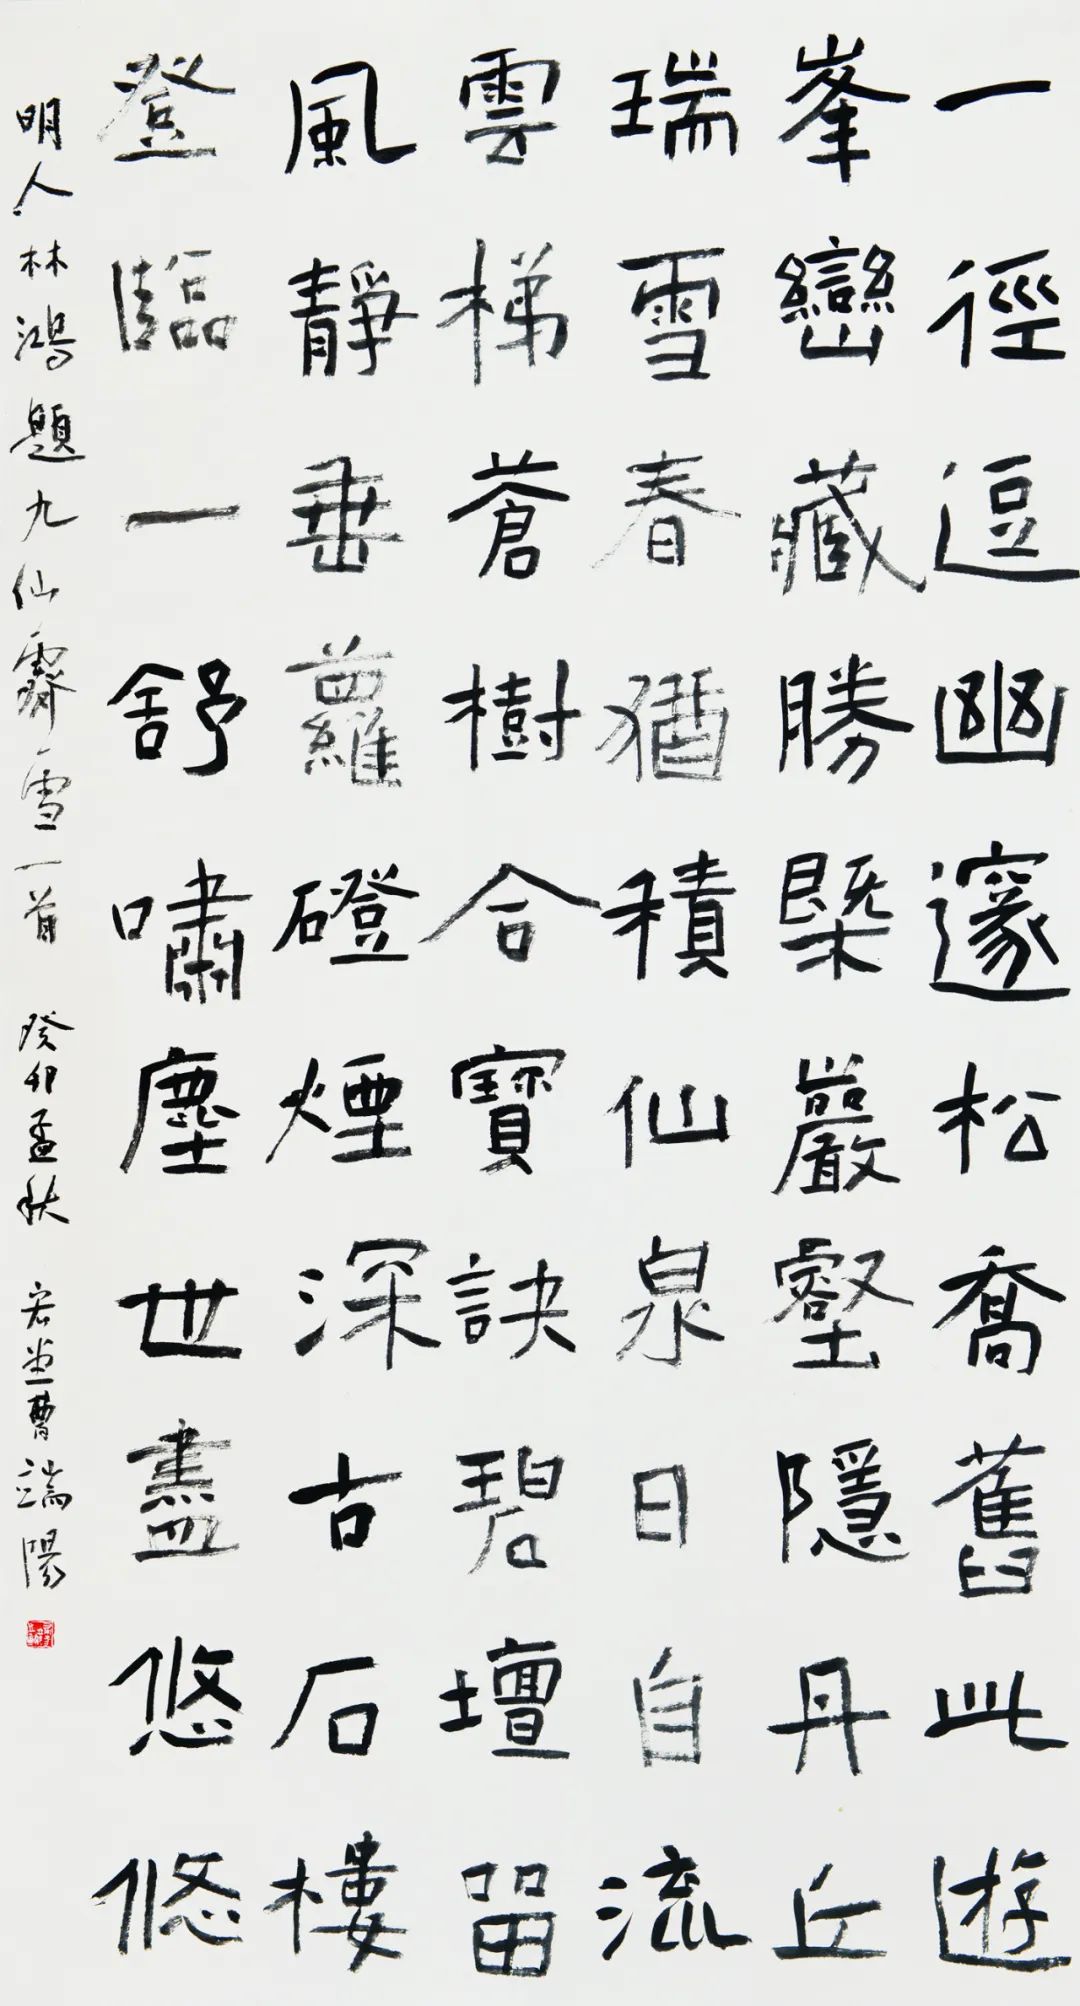 一徑逗幽邃松喬舊此遊
峯巒藏勝槩巖壑隱丹丘
瑞雪春猶積仙泉日自流
雲梯蒼樹合寶訣碧壇留
風靜垂蘿磴煙深古石樓
登臨一舒嘯塵世盡悠悠
明人林鴻題九仙霽雪一首 癸卯孟秋 曹端陽